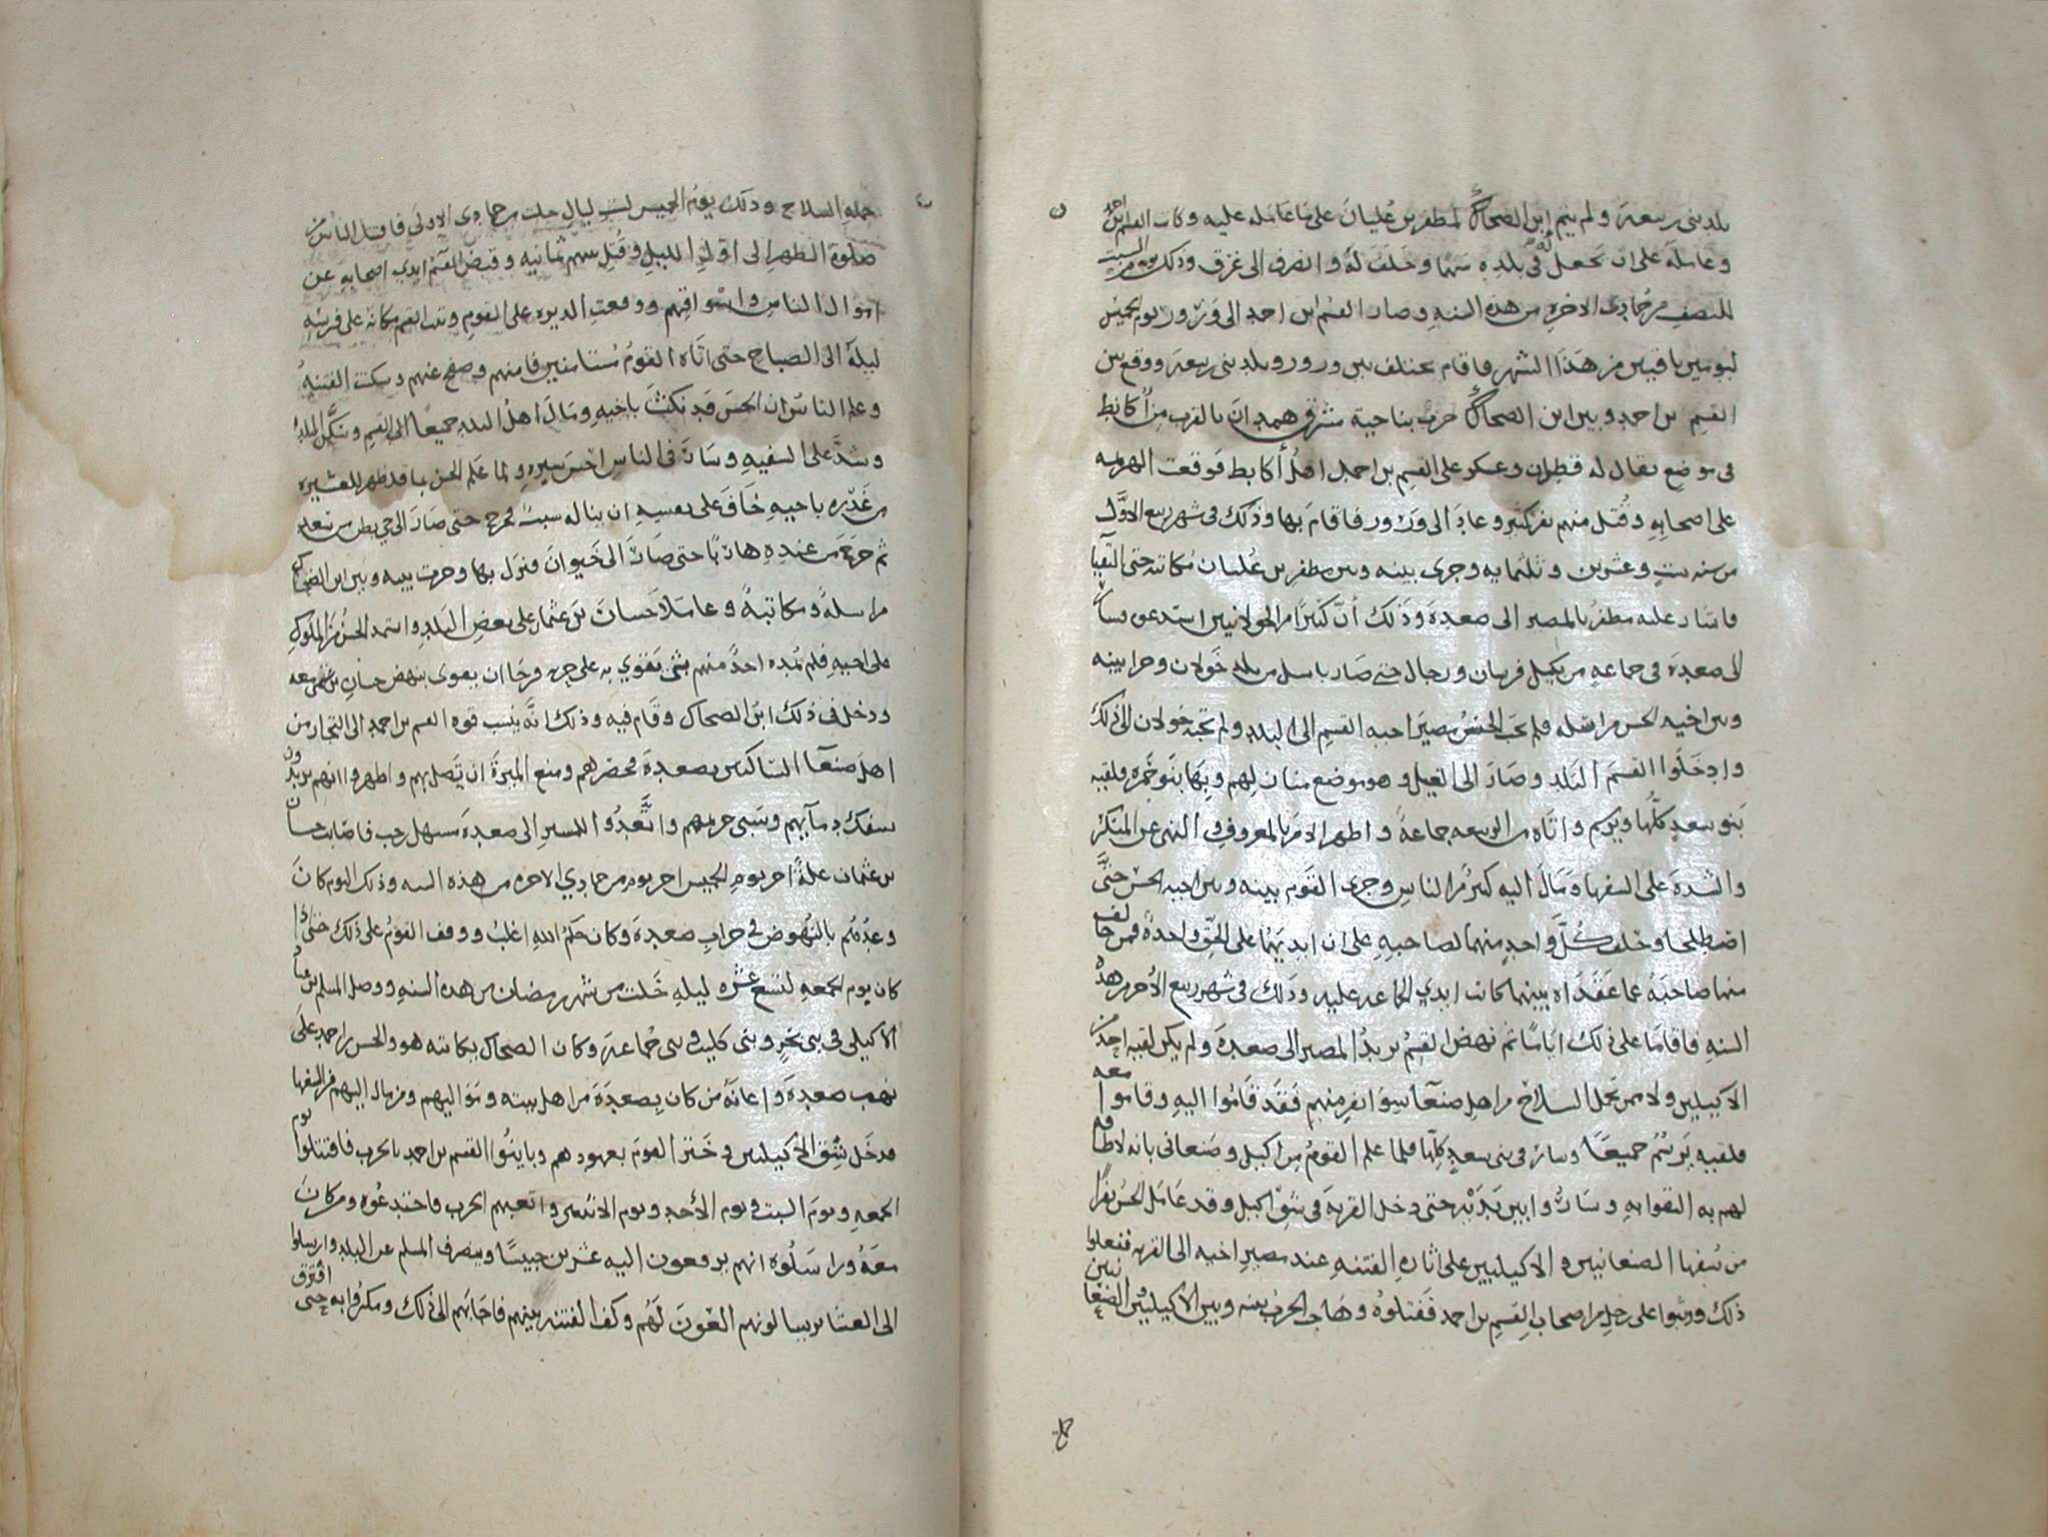 بلد بنى ربيعة ولم يتم ابن الضحاك لمظفر بن عليان على ما عامله عليه وكاتب القسم بن احمد
وعامله على ان يجعل له فى بلده سهما وحلف له وانصرف الى غرق وذلك يوم السبت
للنصف من جمادى الاخره من هذه السنه وصار القسم ابن احمد الى ورور يوم الخميس
ليومين باقيين من هذا الشهر فاقام يختلف بين ورور وبلد بنى ربيعة ووقع بين
القسم بن احمد وبين ابن الضحاك حرب بناحية مشرق همدان بالقرب من اكانط
فى موضع يقال له قطران وعسكر على القسم بن احمد اهل أكانط فوقعت الهزيمه
على اصحابه وقتل منهم نفر كثير وعاد الى ورور فاقام بها وذلك فى شهر ربيع الاول
من سنه ست وعشرين وثلثمايه وجرى بينه وبين مظفر بن عليان مكاتبه حتى التقيا
فاشار عليه مظفر بالمصير الى صعدة وذلك أن كثيرا من الخولانيين استدعوه وسار
الى صعدة فى جماعه من بكيل فرسان ورجال حتى صار باسل من بلد خولان وجرا بينه
وبين اخيه الحسن مراسله فلم يحب الحسن مصير اخيه القسم الى البلد ولم تجبه خولان الى ذلك
وادخلوا القسم البلد وصار الى الغيل وهو موضع منازلهم وبها بنو حمزه فلقيه
بنو سعد كلها ويرسم واتاه من الربيعه جماعة واظهر الامر بالمعروف والنهى عن المنكر
والشدة على السفها ومال اليه كثير من الناس وجرى القوم بينه وبين اخيه الحسن حتى
اصطلحا وحلف كل واحد منهما لصاحبه على ان ايديهما على الحق واحدة فمن خالف
منهما صاحبه عما عقداه بينهما كانت ايدي الجماعه عليه وذلك فى شهر ربيع الاخر من هذه
السنه فاقاما على ذلك اياما ثم نهض القسم يريد المصير الى صعدة ولم يكن لقيه احد من
الاكيليين ولا ممن يحمل السلاح من اهل صنعآ سوا نفر منهم فقد قاموا اليه وقاموا معه
فلقيه يرسم جميعا وسار فى بنى سعد كلها فلما علم القوم من اكيل وصنعانى بانه لا طاقه
لهم به القوا به وساروا بين يديه حتى دخل القريه فى شق اكيل وقد عامل الحسن نفرا
من سفها الصنعانيين والاكيليين على اثاره الفتنه عند مصير اخيه الى القريه ففعلوا
ذلك ووثبوا على رجل من اصحاب القسم بن احمد فقتلوه وهاج الحرب بينه وبين الاكيليين والصنعانيين
حمله السلاح وذلك يوم الخميس لست ليال خلت من جمادى الاولى فاقتتل الناس من
صلوة الظهر الى اول الليل وقتل بينهم ثمانيه وقبض القسم ايدي اصحابه عن
اموال الناس واسواقهم ووقعت الديره على القوم وثبت القسم مكانه على فرسه
ليله الى الصباح حتى اتاه القوم مستامنين فامنهم وصفح عنهم وسكنت الفتنه
وعلم الناس ان الحسن قد نكث باخيه ومال اهل البلد جميعا الى القسم وسكن البلد
وشد على السفيه وسار فى الناس احسن سيره ولما علم الحسن بما قد ظهر للعشيره
من غدره باخيه خاف على نفسه ان يناله سبب فخرج حتى صار الى حي بطن من سعد
ثم خرج من عنده هاربا حتى صار الى خيوان فنزل بها وجرت بينه وبين ابن الضحاك
مراسلة ومكاتبة وعاملا حسان بن عثمان على بعض البلد واستمد الحسن من الملوك
على اخيه فلم يمده احد منهم بشى يقوي به على حربه فرجا ان يقوى بنهض حسان بن عثمان معه
ودخل فى ذلك ابن الضحاك وقام فيه وذلك انه ينسب قوه القسم بن احمد الى التجار من
اهل صنعآ الساكنين بصعدة فحضر لهم ومنع الميرة ان تصل بهم واظهروا انهم يريدون
سفك دمآيهم وسبى حريمهم واتعدوا للمسير الى صعدة مستهل رجب فاصابت حسان
بن عثمان علة اخر يوم الخميس اخر يوم من جمادي الاخره من هذه السنه وذلك اليوم كان
وعدهم بالنهوض فى خراب صعدة وكان حكم الله اغلب ووقف القوم على ذلك حتى اذا
كان يوم الجمعه لتسع عشره ليله خلت من شهر رمضان من هذه السنه ووصل المسلم بن عباد
الاكيلى فى بنى بحر وبنى كليب فى بنى جماعة وكان الضحاك يكاتبه هو والحسن بن احمد على
نهب صعدة واعانه من كان بصعدة من اهل بيته ومواليهم ومن مال اليهم من السفها
فدخل شق الاكيليين وختر القوم بعهودهم وباينوا القسم بن احمد بالحرب فاقتتلوا يوم
الجمعه ويوم السبت ويوم الأحد ويوم الاثنين واتعبهم الحرب فاختدعوه ومن كان
معه وراسلوه انهم يدفعون اليه عشرين حبيسا وينصرف المسلم عن البلد وارسلوا
الى العشاير يسالونهم العون لهم وكف الفتنه بينهم فاجابهم الى ذلك ومكروا به حتى افترق